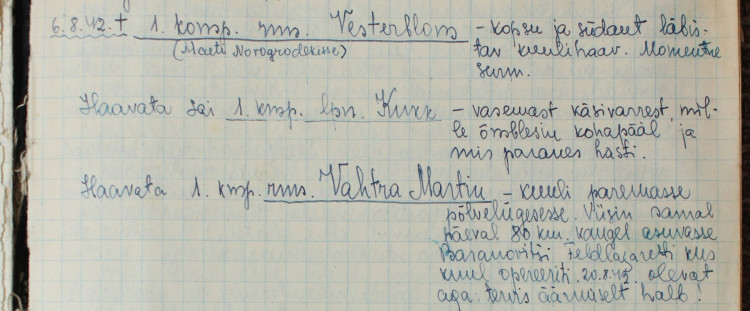 6.8.42. † 1. komp. rms. Vesterblom – kopsu ja südant läbis-
(Maeti Novogrodekisse) tav kuulihaav. Momentne
surm.
Haavata sai 1. kmp. lpn. Kukk – vasemast käsivarrest, mil-
le õmblesin kohapääl ja
mis paranes hästi.
Haavata 1. kmp. rms. Vahtra Martin – kuuli paremasse
põlveliigesesse. Viisin samal
päeval 80 km. kaugel asuvasse
Baranovitši Feldlazaretti kus
kuul opereeriti. 20.8.42. olevat
aga tervis äärmiselt halb!